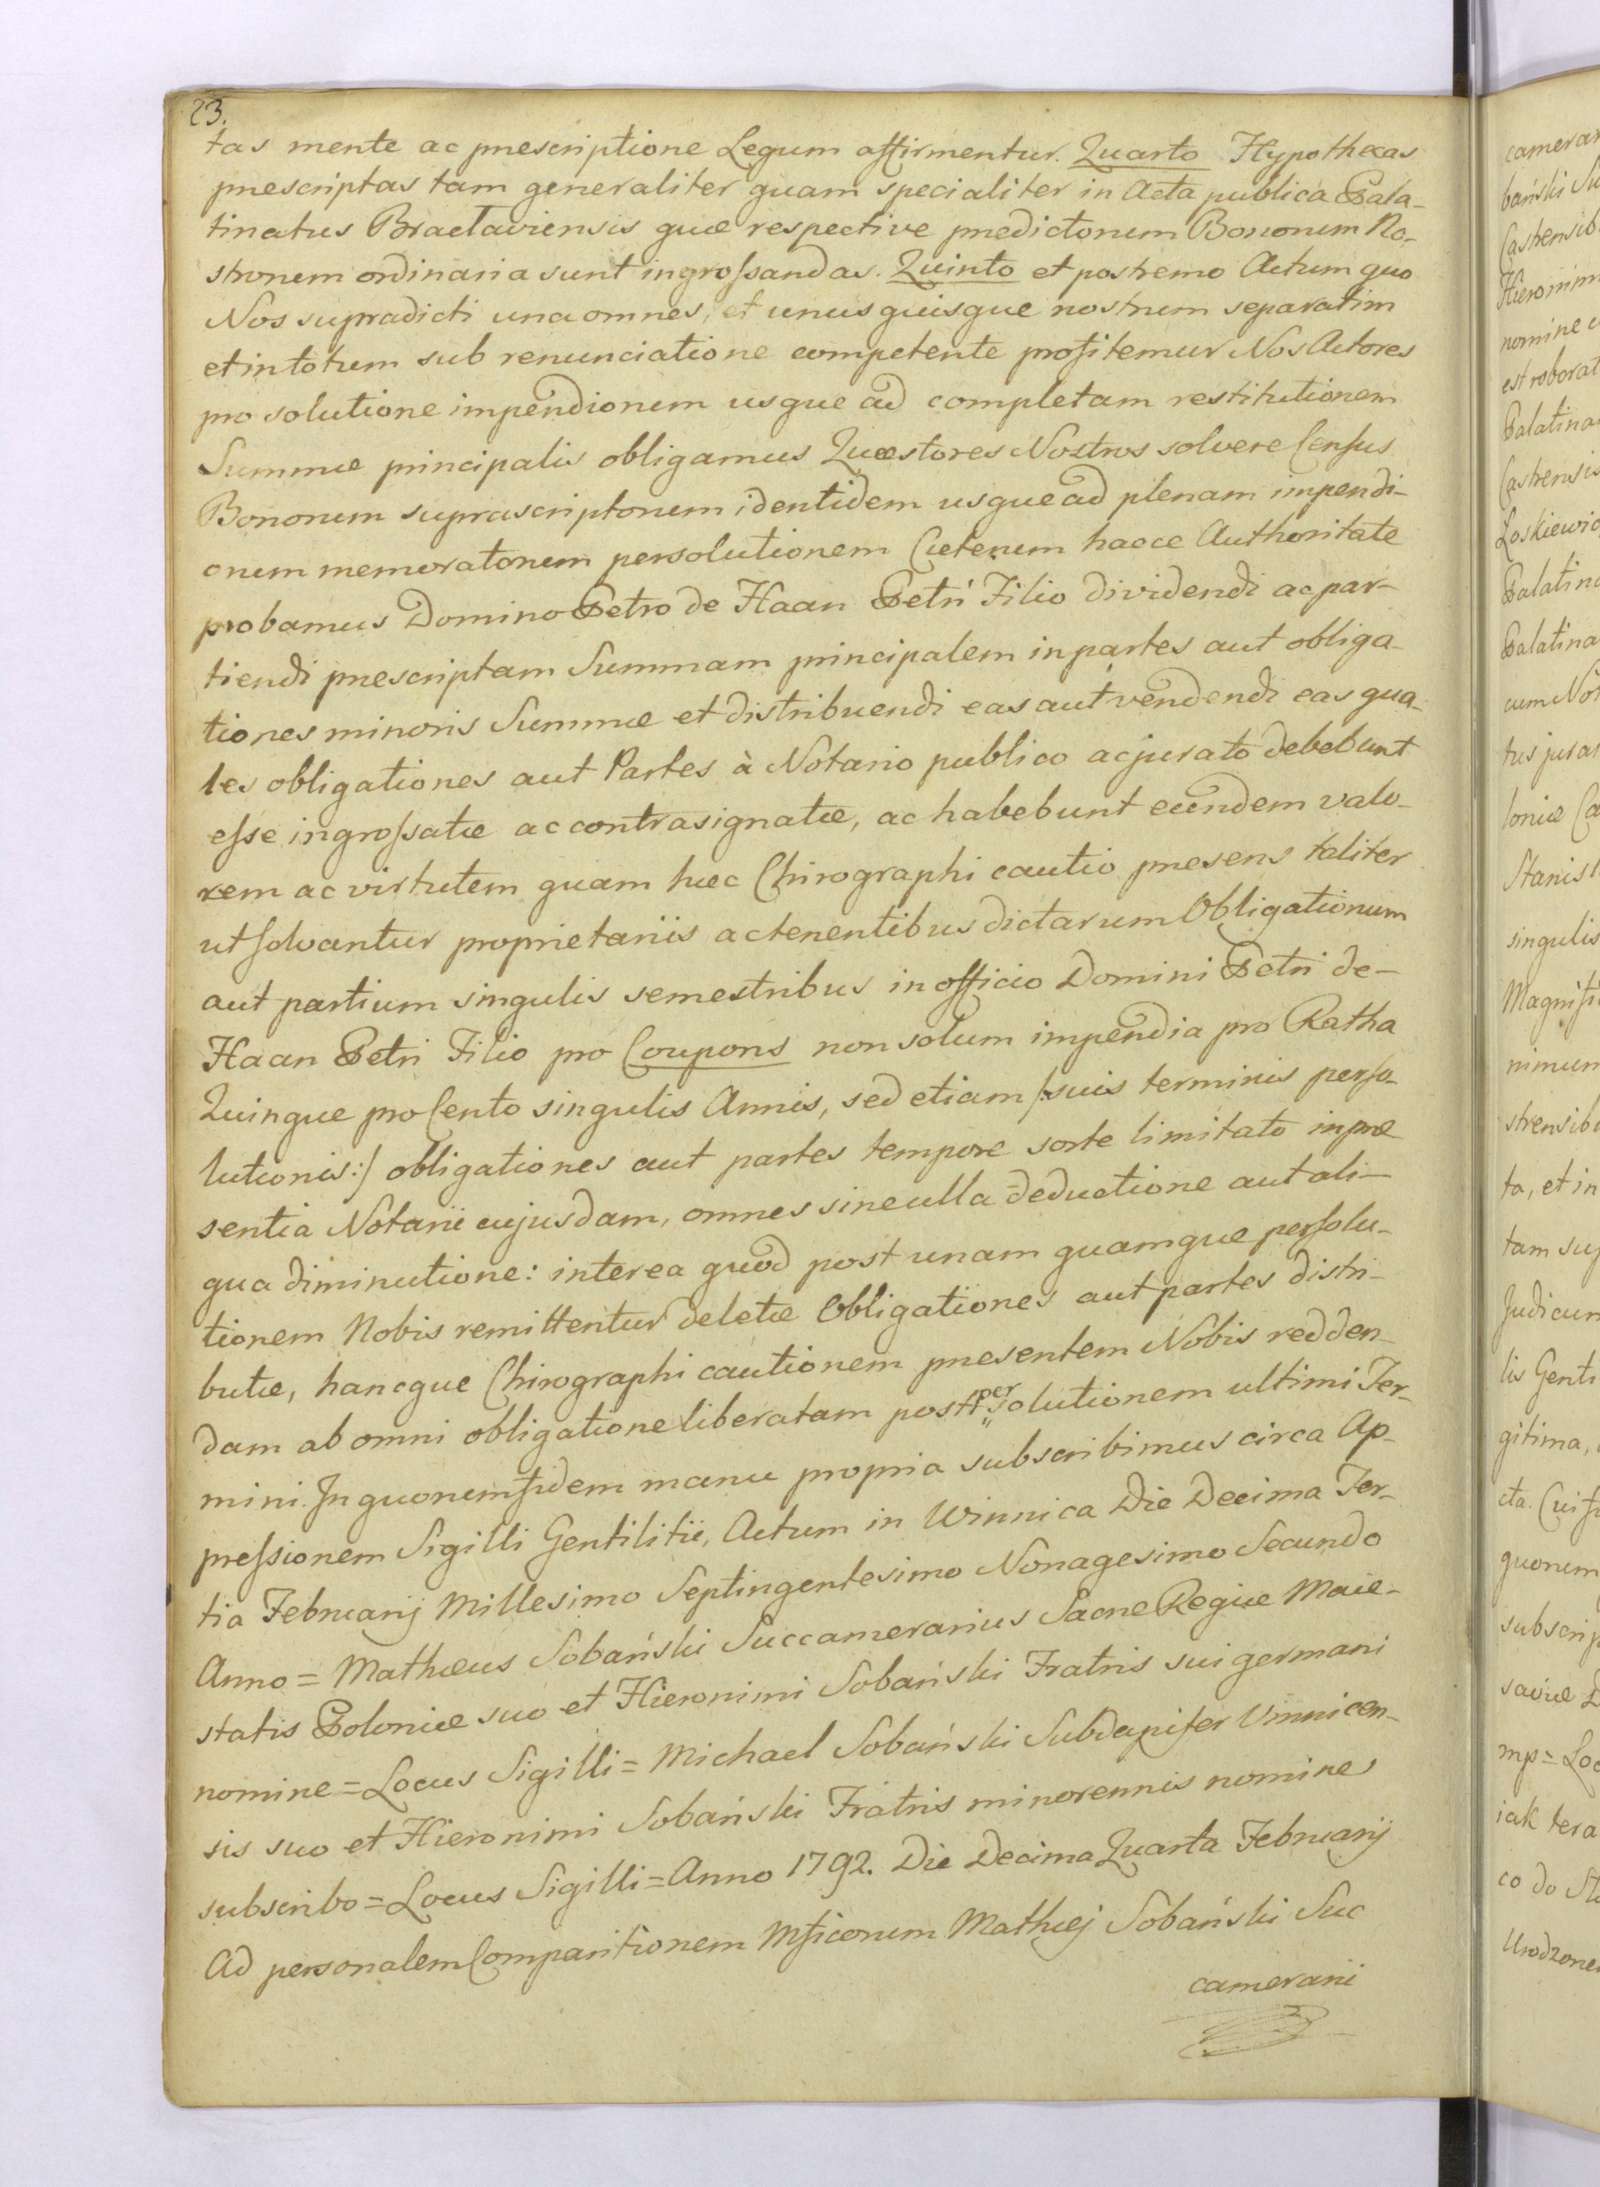 23.
tas mente ac præscriptione Legum affirmentur. Quarto Hypothecas
præscriptas tam generaliter quam specialiter in Acta publica Pala-
tinatus Braclaviensis quæ respective prædictorum Bonorum No-
strorum ordinaria sunt ingrossandas. Quinto et postremo Actum quo
Nos supradicti una omnes, et unus quisque nostrum separatim
et in totum sub renunciatione competente profitemur Nos Actores
pro solutione impendiorum usque ad completam restitutionem
Summæ principalis obligamus Quæstores Nostros solvere Census
Bonorum suprascriptorum identidem usque ad plenam impendi-
orum memoratorum persolutionem Cæterum hacce Authoritate
probamus Domino Petro de Haan Petri Filio dividendi ac par-
tiendi præscriptam Summam principalem in partes aut obliga-
tiones minoris Summæ et distribuendi eas aut vendendi eas qua-
les obligationes aut Partes à Notario publico ac jurato debebunt
esse ingrossatæ ac contrasignatæ, ac habebunt eundem valo-
rem ac virtutem quam hæc Chirographi cautio præsens taliter
ut solvantur proprietariis ac tenentibus dictarum Obligationum
aut partium singulis semestribus in officio Domini Petri de-
Haan Petri Filio pro Coupons non solum impendia pro Ratha
Quinque pro Cento singulis Annis, sed etiam /:suis terminis perso-
lutionis:/ obligationes aut partes tempore sorte limitato in præ
sentia Notarii cujusdam, omnes sine ulla deductione aut ali-
qua diminutione: interea quod post unam quamque persolu-
tionem Nobis remittentur deletæ Obligationes aut partes distri-
butæ, hancque Chirographi cautionem præsentem Nobis redden-
dam ab omni obligatione liberatam post persolutionem ultimi Ter-
mini. In quorum fidem manu propria subscribimus circa Ap-
pressionem Sigilli Gentilitii, Actum in Winnica Die Decima Ter-
tia Februarij Millesimo Septingentesimo Nonagesimo Secundo
Anno = Mathæus Sobański Succamerarius Sacræ Regiæ Maie-
statis Poloniæ suo et Hieronimi Sobański Fratris sui germani
nomine = Locus Sigilli = Michael Sobański Subdapifer Vinnicen-
sis suo et Hieronimi Sobański Fratris minorennis nomine
subscribo = Locus Sigilli = Anno 1792. Die Decima Quarta Februarij
Ad personalem Comparitionem Mficorum Mathæj Sobański Suc
camerarii